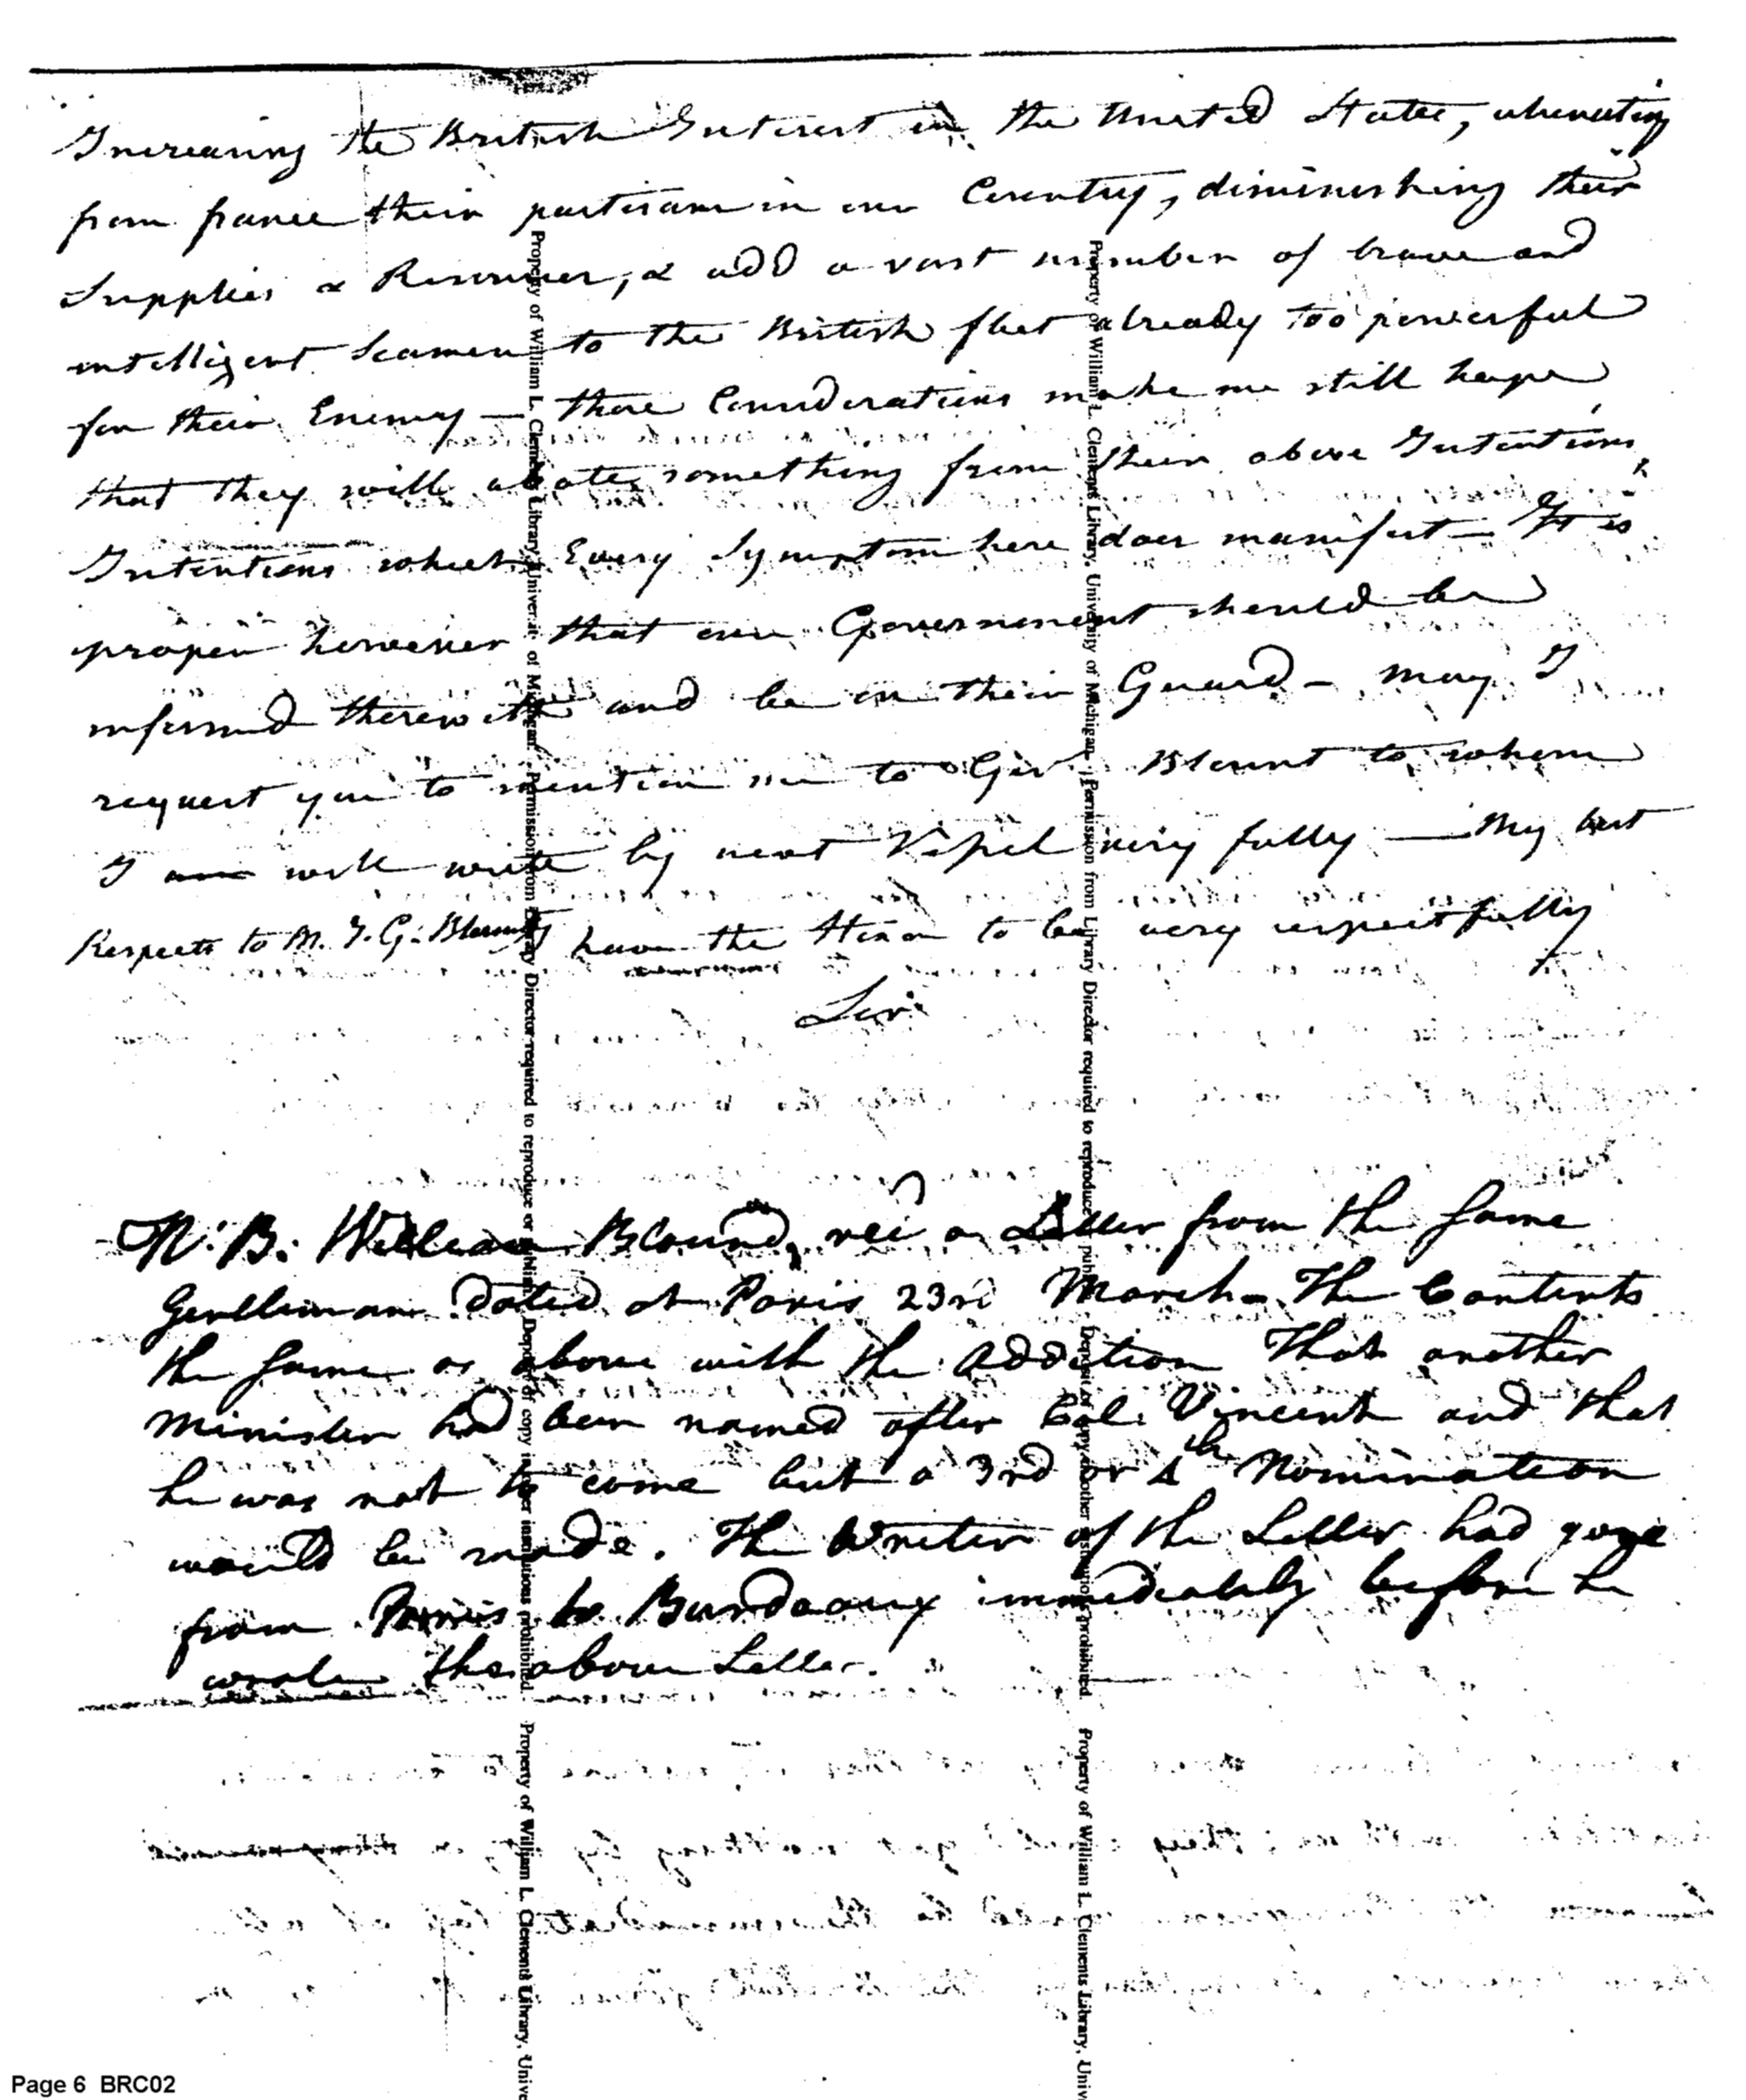 Increasing the British Interest in the United States, alienating
from france their partisans in our Country, diminishing their
Supplies & Resources, & add a vast number of brave and
intelligent Seamen to the British fleet already too powerful
for their Enemy — these Considerations make me still hope
that they will abate something from their above Intentions,
Intentions which Every Symptom here does manifest — It is
proper however that our Government should be
informed therewith and be on their Guard — may I
request you to mention me to Govr Blount to whom
I am will write by next Vessel very fully — My best
Respects to M. J. G. Blount, I have the Honor to be very respectfully
Sir
N. B. William Blound, reċ a Letter from the Same
Gentleman dated at Paris 23rd March — The Contents
the Same as above with the addition That another
Minister had been named after Col. Vincent and that
he was not to come but a 3rd or 4th Nomination
would be made. The Writer of the Letter had gone
from Parris to Burdeaux immediately before he
wrote the above Letter.
Property of William L. Clements Library, University of Michigan. Permission from Library Director required to reproduce or publish. Deposit of copy in other institutions prohibited.
Property of William L. Clements Library, Unive
Property of William L. Clements Library, University of Michigan. Permission from Library Director required to reproduce or publish. Deposit of copy in other institutions prohibited.
Property of William L. Clements Library, Univ
Page 6 BRC02